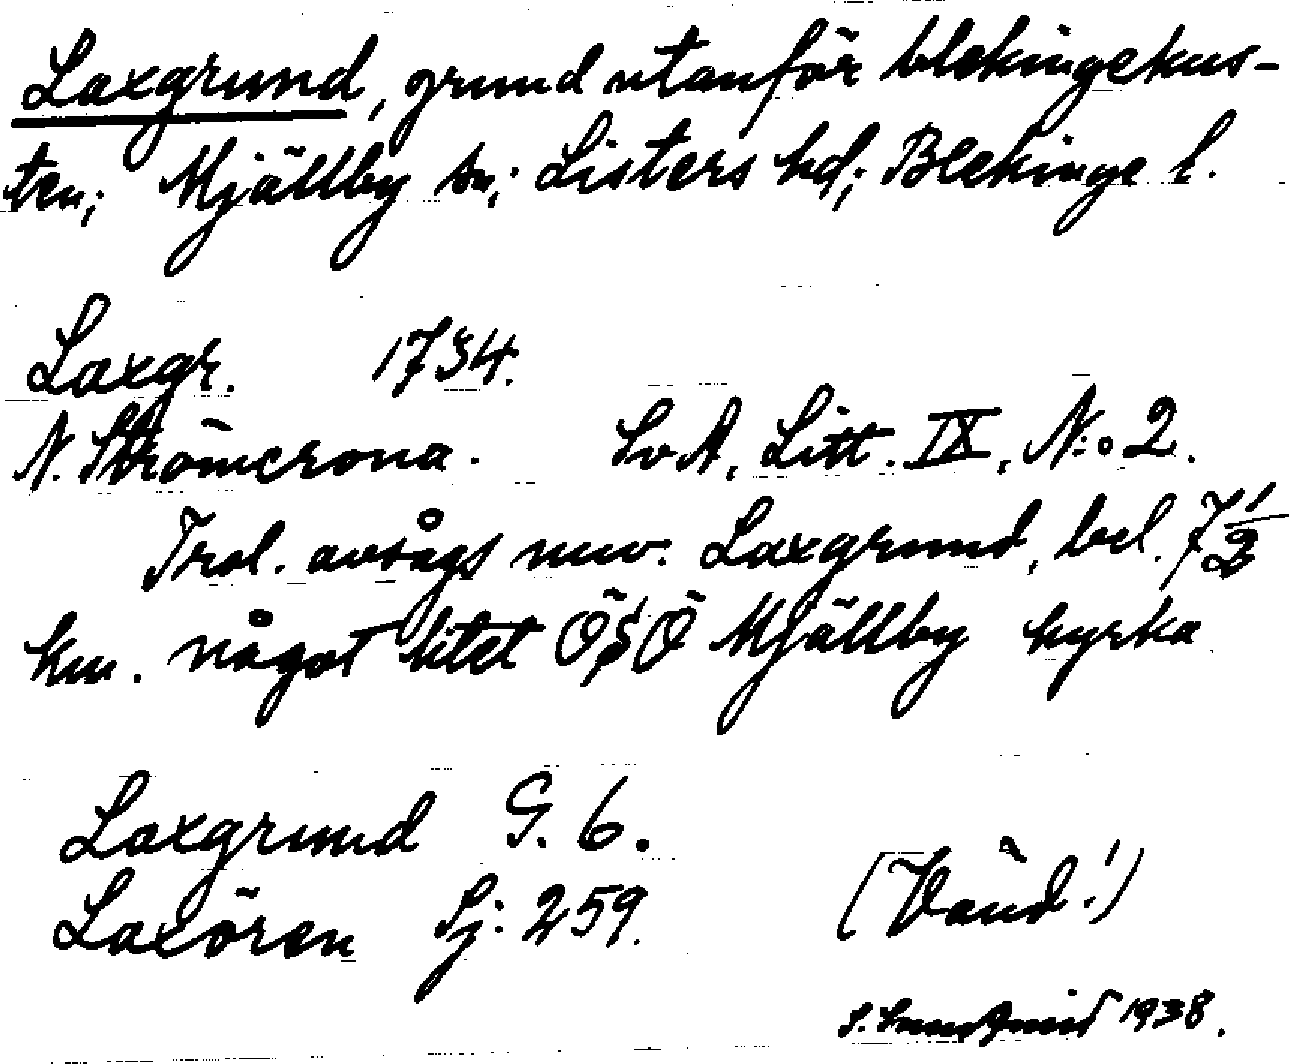 Laxgrund, grund utanför blekingekus-
ten; Mjällby sn; Listers hd; Blekinge l.
Laxgr. 1734.
N. Strömcrona. SvA, Litt. IX, N:o 2.
Trol. avsågs nuv. Laxgrund, bel. 7 1/2
km. något litet ÖSÖ Mjällby kyrka
Laxgrund G. 6.
Laxören Sj: 259.
(Vänd!)
S. 1938.